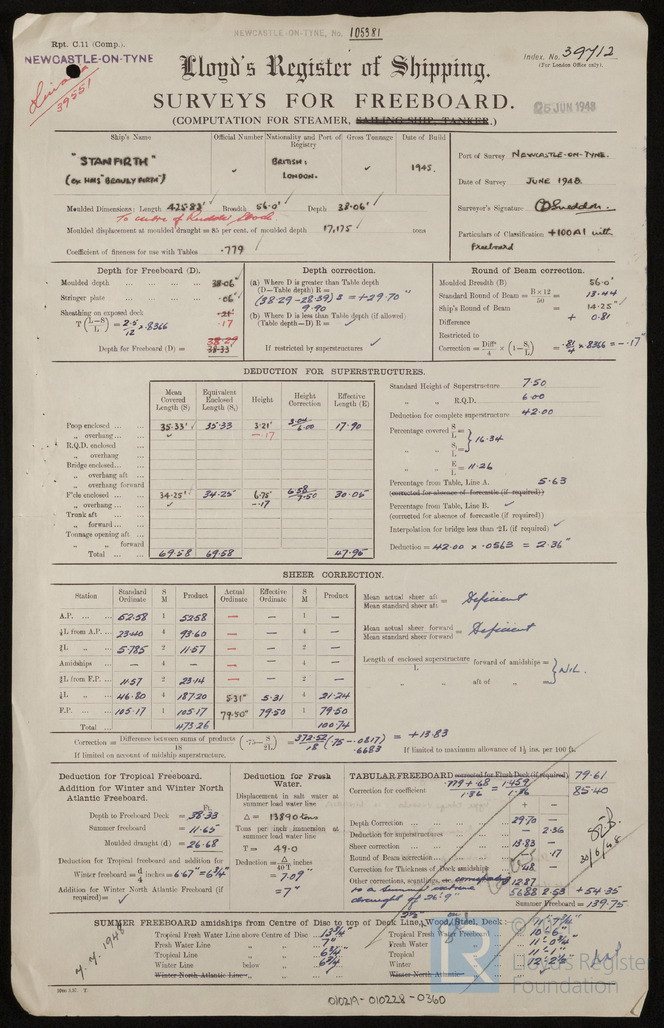 NEWCASTLE-ON-TYNE, No. 105381
Rpt. C.11 (Comp.).
NEWCASTLE-ON-TYNE
39551
Index. No. 39712
(For London Office only).
Lloyd's Register of Shipping.
SURVEYS FOR FREEBOARD.
25 JUN 1948
(COMPUTATION FOR STEAMER, SAILING SHIP, TANKER.)
Ship's Name Official Number Nationality and Port of Registry Gross Tonnage Date of Build
"STANFIRTH" BRITISH: 1945.
(ex HMS "BEAULY FIRTH") LONDON.
Port of Survey NEWCASTLE-ON-TYNE.
Date of Survey JUNE 1948.
Surveyor's Signature
Particulars of Classification +100A1 with Freeboard
Moulded Dimensions: Length 425.83' Breadth 56.0' Depth 38.06'
To centre of Rudder Stock
Moulded displacement at moulded draught = 85 per cent. of moulded depth 17,175 tons
Coefficient of fineness for use with Tables .779
Depth for Freeboard (D).
Moulded depth ... 38.06"
Stringer plate ... .06"
Sheathing on exposed deck .21
T (L-S/L) = 2.5/12 × .8366 .17
38.29
Depth for Freeboard (D) = 38.33
Depth correction.
(a) Where D is greater than Table depth
(D—Table depth) R =
(38.29 - 28.39) 3 = +29.70"
9.90
(b) Where D is less than Table depth (if allowed)
(Table depth—D) R =
If restricted by superstructures
Round of Beam correction.
Moulded Breadth (B) 56.0'
Standard Round of Beam = B×12/50 = 13.44
Ship's Round of Beam = 14.25"
Difference + 0.81
Restricted to
Correction = Diff/4 × (1-S₁/L) = .81/4 × .8366 = -.17"
DEDUCTION FOR SUPERSTRUCTURES.
Mean Covered Length (S) Equivalent Enclosed Length (S₁) Height Height Correction Effective Length (E)
Poop enclosed ... 35.33' 35.33 3.21' 3.04/6.00 17.90
" overhang ... -.17
R.Q.D. enclosed
" overhang
Bridge enclosed...
" overhang aft ...
" overhang forward
F'cle enclosed ... 34.25' 34.25 6.75' 6.58/7.50 30.05
" overhang ... -.17
Trunk aft ...
" forward ...
Tonnage opening aft ...
" " forward
Total ... 69.58 69.58 47.95
Standard Height of Superstructure 7.50
" " R.Q.D. 6.00
Deduction for complete superstructure 42.00
Percentage covered S/L =
" " S₁/L = } 16.34
" " E/L = 11.26
Percentage from Table, Line A. 5.63
(corrected for absence of forecastle (if required))
Percentage from Table, Line B.
(corrected for absence of forecastle (if required))
Interpolation for bridge less than .2L (if required)
Deduction = 42.00 × .0563 = 2.36"
SHEER CORRECTION.
Station Standard Ordinate S M Product Actual Ordinate Effective Ordinate S M Product
A.P. ... 52.58 1 52.58 — — 1 —
⅙L from A.P. ... 23.40 4 93.60 — — 4 —
⅓L " 5.785 2 11.57 — — 2 —
Amidships ... — 4 — — — 4 —
⅓L from F.P. ... 11.57 2 23.14 — — 2 —
⅙L " ... 46.80 4 187.20 5.31" 5.31 4 21.24
F.P. ... 105.17 1 105.17 79.50" 79.50 1 79.50
Total ... 473.26 100.74
Mean actual sheer aft / Mean standard sheer aft = Deficient
Mean actual sheer forward / Mean standard sheer forward = Deficient
Length of enclosed superstructure / L forward of amidships =
" aft of " = } NIL.
Correction = Difference between sums of products / 18 (.75 - S/2L) = 372.52/18 (.75 - .0817) = + 13.83
.6683
If limited on account of midship superstructure. If limited to maximum allowance of 1½ ins. per 100 ft.
Deduction for Tropical Freeboard.
Addition for Winter and Winter North Atlantic Freeboard.
Ft.
Depth to Freeboard Deck = 38.33
Summer freeboard = 11.65
Moulded draught (d) = 26.68
Deduction for Tropical freeboard and addition for
Winter freeboard = d/4 inches = 6.67" = 6¾"
Addition for Winter North Atlantic Freeboard (if required) =
Deduction for Fresh Water.
Displacement in salt water at summer load water line
Δ = 13890 tons
Tons per inch immersion at summer load water line
T = 49.0
Deduction = Δ/40T inches
= 7.09"
= 7"
TABULAR FREEBOARD corrected for Flush Deck (if required) 79.61
Correction for coefficient .779 + .68 / 1.36 = 1.459/1.36 85.40
+ —
Depth Correction ... 29.70 —
Deduction for superstructures ... — 2.36
Sheer correction ... 13.83 —
Round of Beam correction ... — .17
Correction for Thickness of Deck amidships .48 —
Other corrections, scantlings, etc. corresponding 12.87
to a Summer extreme
draught of 26'-9"
56.88 2.53 + 54.35
Summer Freeboard = 139.75
30/6/48
SUMMER FREEBOARD amidships from Centre of Disc to top of Deck Line, Wood/Steel, Deck:— 11'-7¾"
Tropical Fresh Water Line above Centre of Disc ... 13¾" Tropical Fresh Water Freeboard ... 10'-6"
Fresh Water Line " " ... 7" Fresh Water " ... 11'-0¾"
Tropical Line " " ... 6¾" Tropical " ... 11'-1"
Winter Line below " ... 6¾" Winter " ... 12'-2½"
Winter North Atlantic Line " Winter North Atlantic "
7.7.1948
LR
© Lloyd's Register Foundation
010219-010228-0360